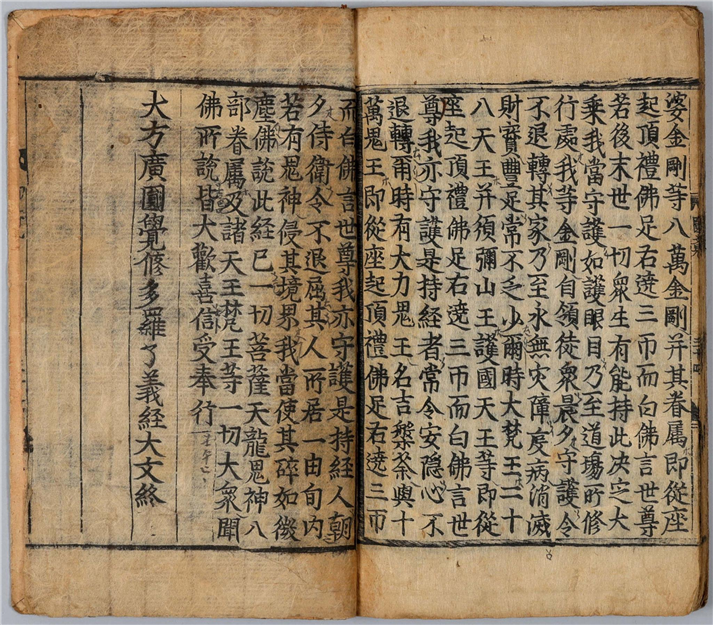 婆金剛等八萬金剛并其眷属即從座
起頂禮佛足右遶三帀而白佛言世尊
若後末世一切衆生有能持此决定大
乘我當守護如護眼目乃至道塲所修
行處我等金剛自領徒衆晨夕守護令
不退轉其家乃至永無灾障疫病消滅
財寶豐足常不乏少爾時大梵王二十
八天王并須彌山王護國天王等即從
座起頂禮佛足右遶三帀而白佛言世
尊我亦守護是持経者常令安隱心不
退轉爾時有大力鬼王名吉槃荼與十
萬鬼王即從座起頂禮佛足右遶三帀
而白佛言世尊我亦守護是持経人朝
夕侍衛令不退屈其人所居一由旬内
若有鬼神侵其境界我當使其碎如微
塵佛說此経已一切菩薩天龍鬼神八
部眷属及諸天王梵王等一切大衆聞
佛所說皆大歡喜信受奉行
大方廣圓覺修多羅了義経大文終